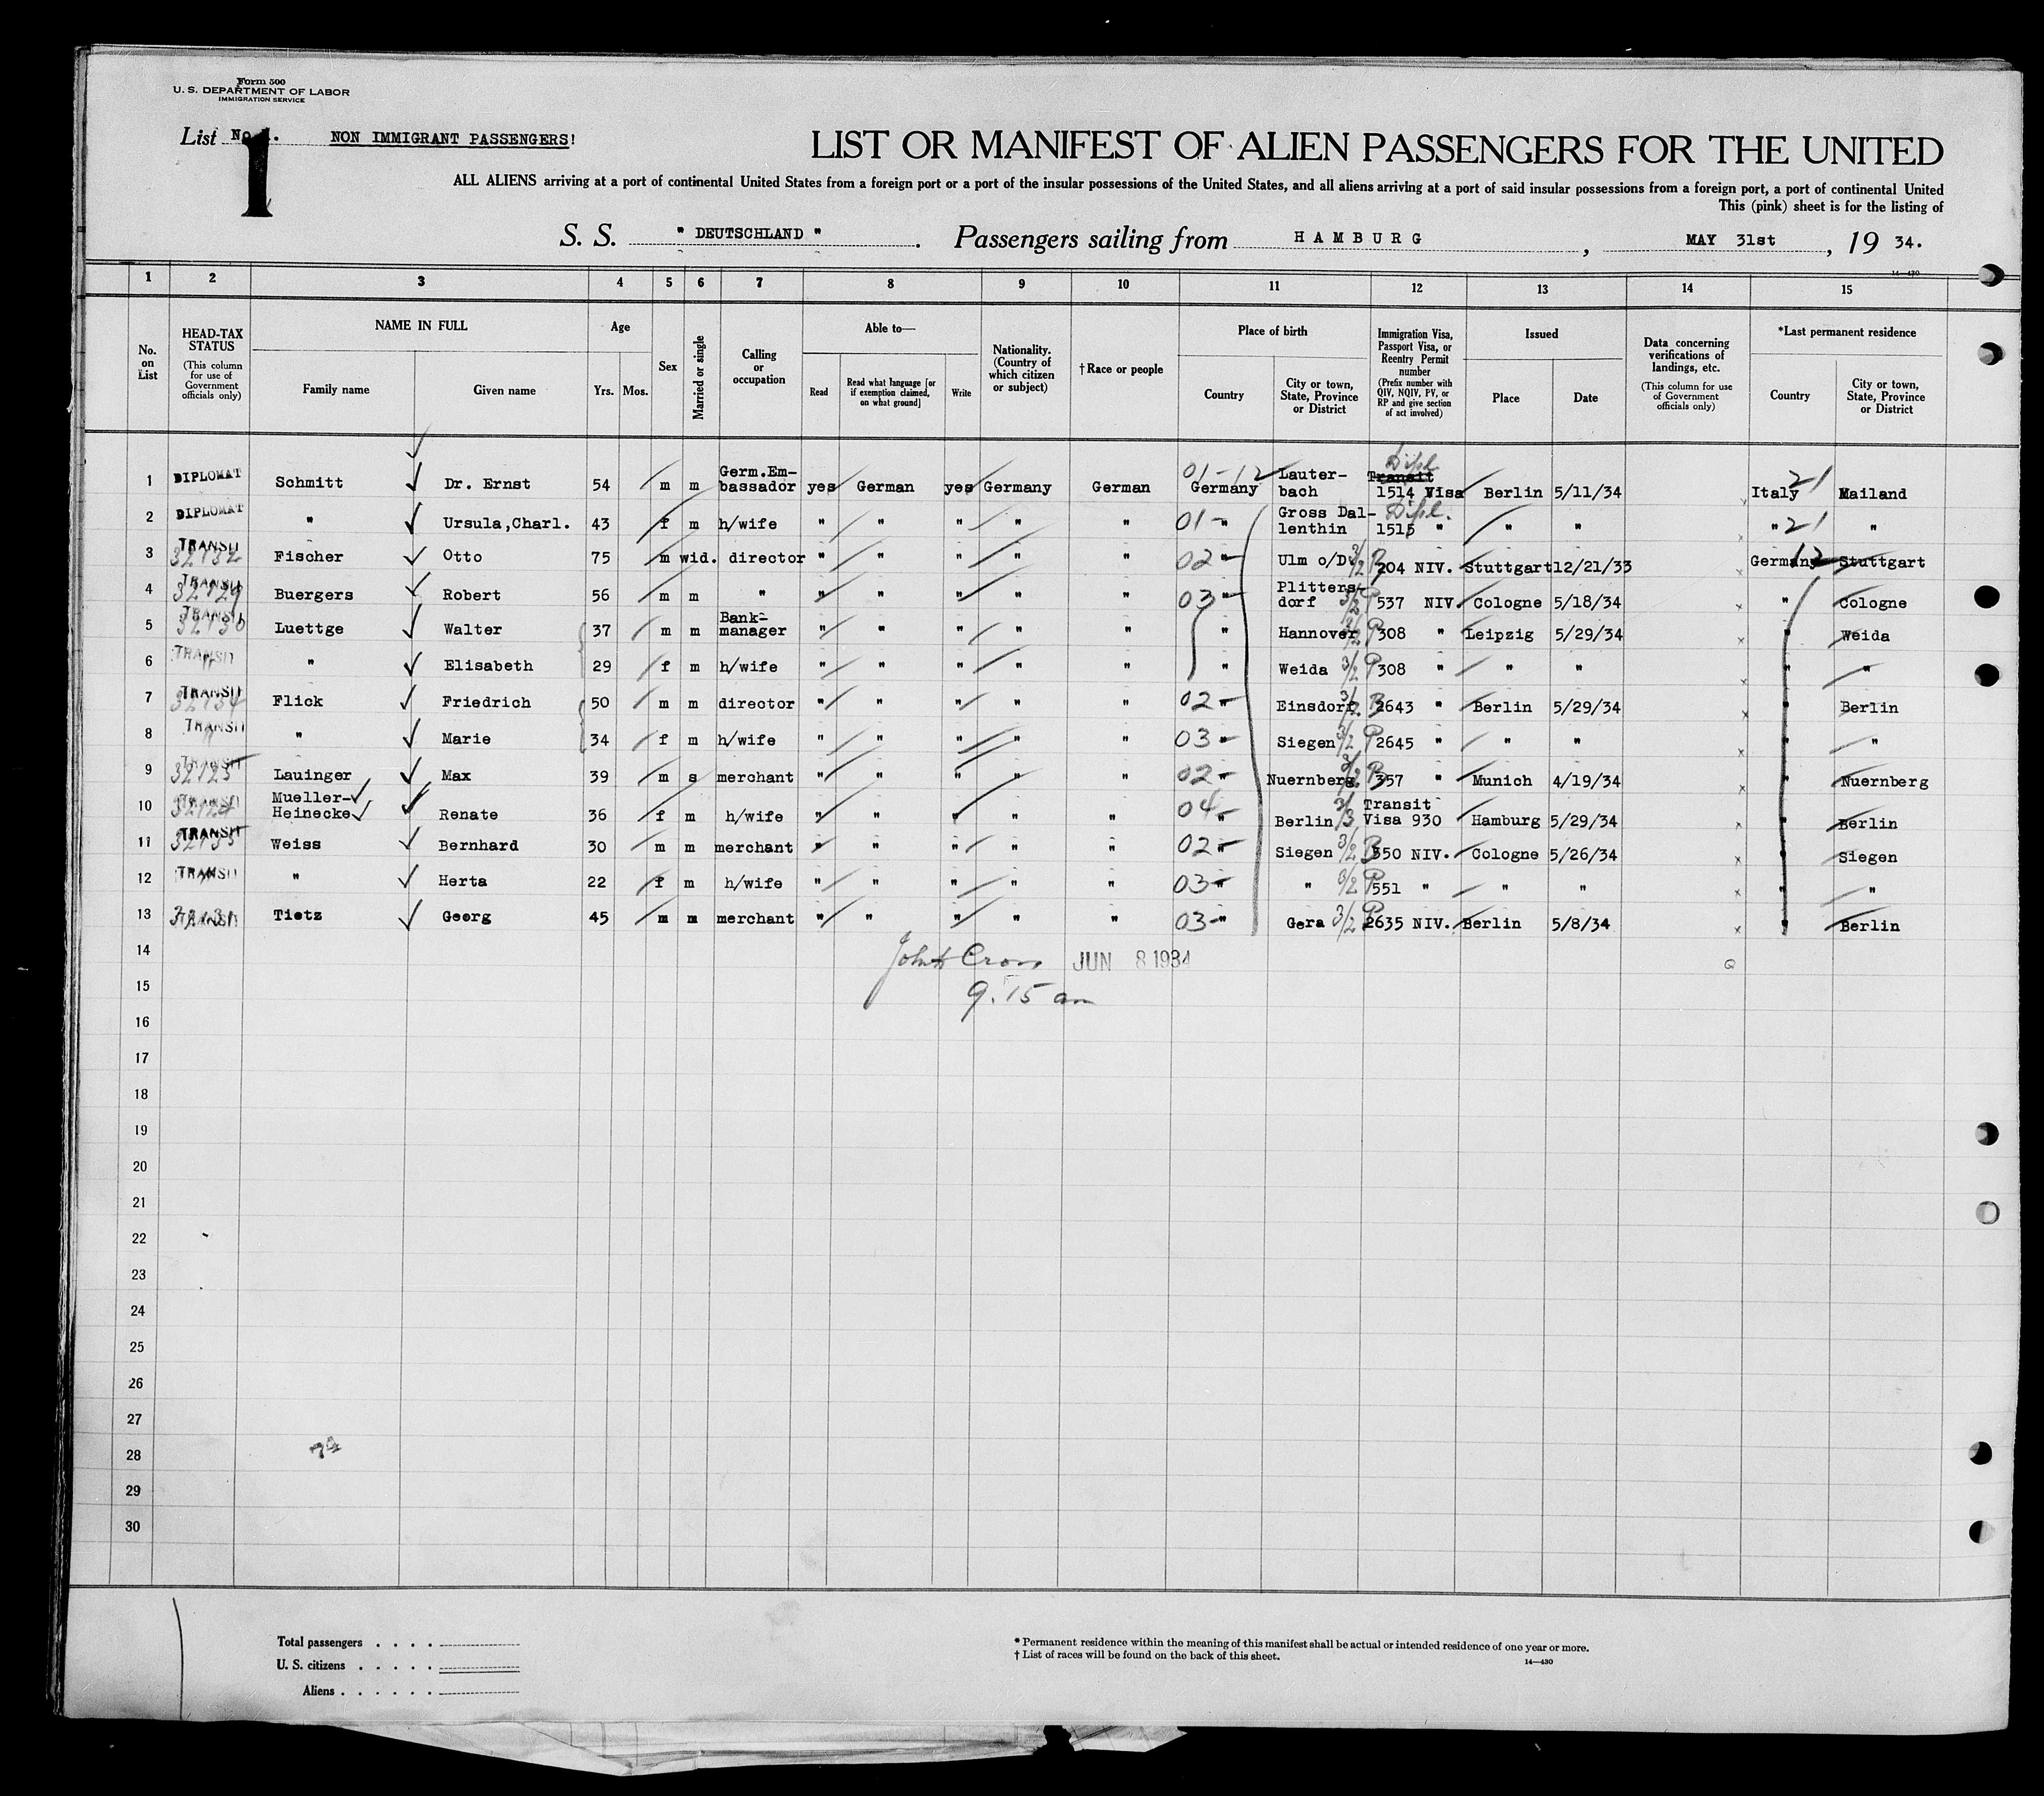 Form 500
U. S. DEPARTMENT OF LABOR
IMMIGRATION SERVICE
List No. 1. NON IMMIGRANT PASSENGERS!
1
LIST OR MANIFEST OF ALIEN PASSENGERS FOR THE UNITED
ALL ALIENS arriving at a port of continental United States from a foreign port or a port of the insular possessions of the United States, and all aliens arriving at a port of said insular possessions from a foreign port, a port of continental United
This (pink) sheet is for the listing of
S. S. " DEUTSCHLAND " . Passengers sailing from HAMBURG , MAY 31st , 19 34.
14—430
1 2 3 4 5 6 7 8 9 10 11 12 13 14 15
No. on List
HEAD-TAX STATUS (This column for use of Government officials only)
NAME IN FULL Family name Given name
Age Yrs. Mos.
Sex
Married or single
Calling or occupation
Able to— Read Read what language [or if exemption claimed, on what ground] Write
Nationality. (Country of which citizen or subject)
†Race or people
Place of birth Country City or town, State, Province or District
Immigration Visa, Passport Visa, or Reentry Permit number (Prefix number with QIV, NQIV, PV, or RP and give section of act involved)
Issued Place Date
Data concerning verifications of landings, etc. (This column for use of Government officials only)
*Last permanent residence Country City or town, State, Province or District
1 DIPLOMAT Schmitt Dr. Ernst 54 m m Germ.Em-bassador yes German yes Germany German 01-12 Germany Lauter-bach Dipl Transit 1514 Visa Berlin 5/11/34 Italy 21 Mailand
2 DIPLOMAT " Ursula,Charl. 43 f m h/wife " " " " " 01- " Gross Dal-lenthin Dipl. 1515 " " " " 21 "
3 TRANSIT 32132 Fischer Otto 75 m wid. director " " " " " 02- " Ulm o/D. 3/2 P 204 NIV. Stuttgart 12/21/33 Germany 12 Stuttgart
4 TRANSIT 32129 Buergers Robert 56 m m " " " " " " 03 " Plitters-dorf 3/2 P 537 NIV. Cologne 5/18/34 " Cologne
5 TRANSIT 32130 Luettge Walter 37 m m Bank-manager " " " " " " Hannover 3/2 P 308 " Leipzig 5/29/34 " Weida
6 TRANSIT " " Elisabeth 29 f m h/wife " " " " " " Weida 3/2 P 308 " " " " "
7 TRANSIT 32134 Flick Friedrich 50 m m director " " " " " 02- " Einsdorf. 3/2 P 2643 " Berlin 5/29/34 " Berlin
8 TRANSIT " " Marie 34 f m h/wife " " " " " 03- " Siegen 3/2 P 2645 " " " " "
9 TRANSIT 32125 Lauinger Max 39 m s merchant " " " " " 02- " Nuernberg. 3/2 P 357 " Munich 4/19/34 " Nuernberg
10 TRANSIT 32124 Mueller-Heinecke Renate 36 f m h/wife " " " " " 04- " Berlin 3/3 Transit Visa 930 Hamburg 5/29/34 " Berlin
11 TRANSIT 32135 Weiss Bernhard 30 m m merchant " " " " " 02- " Siegen 3/2 P 550 NIV. Cologne 5/26/34 " Siegen
12 TRANSIT " " Herta 22 f m h/wife " " " " " 03- " " 3/2 P 551 " " " " "
13 TRANSIT 32131 Tietz Georg 45 m m merchant " " " " " 03- " Gera 3/2 P 2635 NIV. Berlin 5/8/34 " Berlin
14 Cross JUN 8 1934
15 9.15 am
16
17
18
19
20
21
22
23
24
25
26
27
28
29
30
Total passengers . . . .
U. S. citizens . . . . .
Aliens . . . . . .
* Permanent residence within the meaning of this manifest shall be actual or intended residence of one year or more.
† List of races will be found on the back of this sheet.
14—430